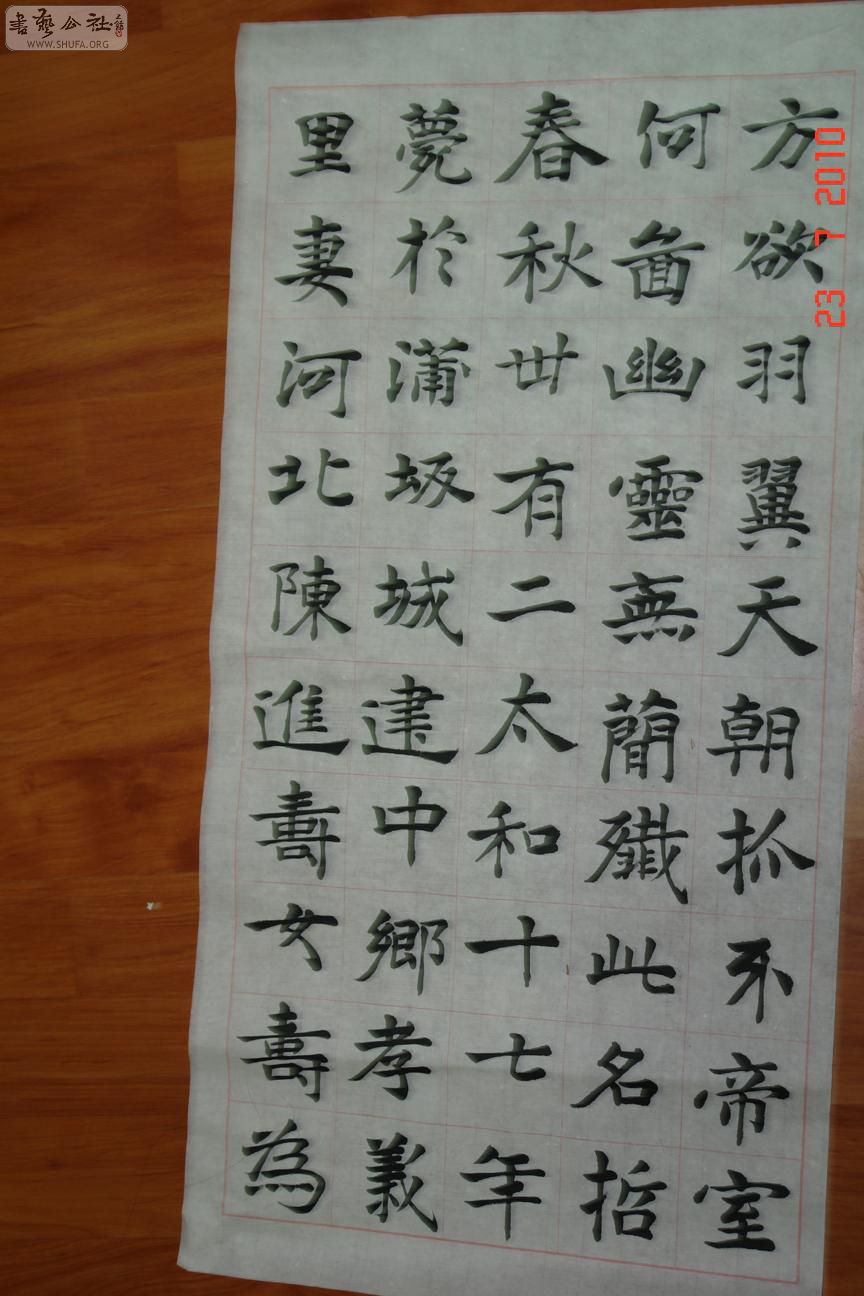 書藝公社
WWW.SHUFA.ORG
方欲羽翼天朝抓不帝室
何啚幽靈無蕳殲此名哲
春秋卅有二太和十七年
薨於蒲坂城建中鄉孝義
里妻河北陳進壽女壽為
23 7 2010